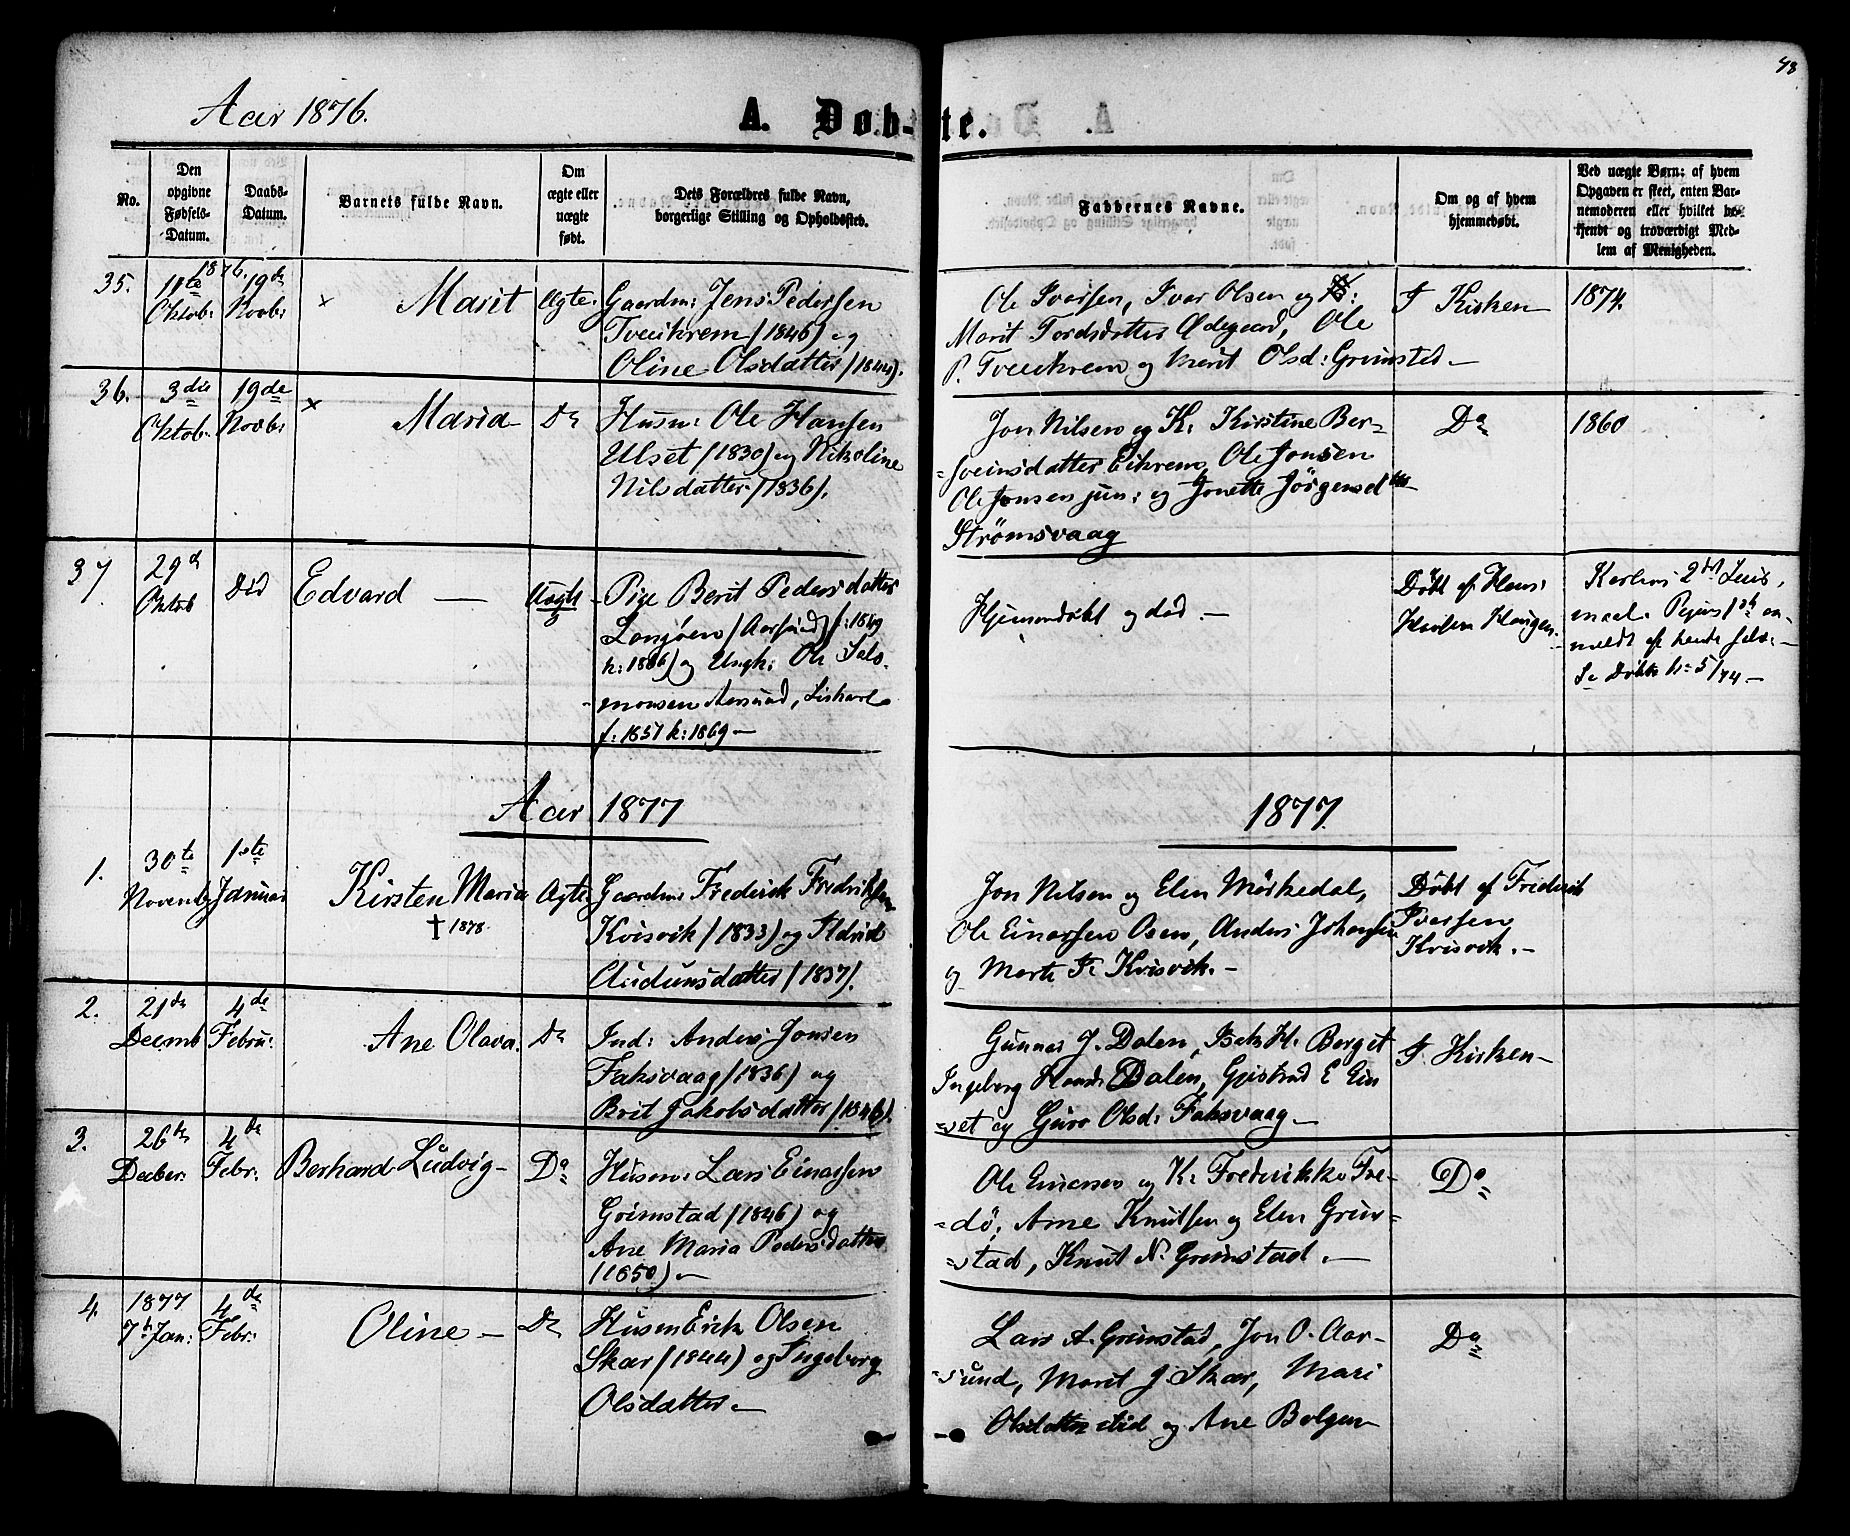 43
Aar 1876.
A. Døb-te.
No.
Den opgivne Fødsels-Datum.
Daabs-Datum.
Barnets fulde Navn.
Om ægte eller uægte født.
Dets Forældres fulde Navn, borgerlige Stilling og Opholdssted.
Faddernes Navne.
Om og af hvem hjemmedøbt.
Ved uægte Børn; af hvem Opgaven er skeet, enten Barnemoderen eller hvilket bekjendt og troværdigt Medlem af Menigheden.
1876.
35. 11te Oktob: 19de Novbr: × Marit Ægte. Gaardm: Jens Pedersen
Tveeikrem (1846) og
Oline Olsdatter (1844).
Ole Iversen, Ivar Olsen og
Marit Tordsdatter Ødegaard, Ole
P. Tveeikrem og Marit Olsd: Grimstad —
I Kirken
1874.
36. 3die Oktob: 19de Novbr: × Maria Do Husm: Ole Hansen
Ulset (1830) og Nikoline
Nilsdatter (1836).
Jon Nilsen og K. Kirstine Ber-
-sveinsdatter Eikrem, Ole Jonsen
Ole Jonsen jun: og Jonette Jørgensdtr
Strømsvaag
Do
1860
37 29d Oktob død Edvard — Uægte Pige Berit Pedersdatter
Langøen (Aarsund) f: 1849
k: 1866) og Ungk: Ole Salo-
monsen Aarsund,
f: 1851 k: 1869 —
Hjemmedøbt og død. —
Døbt af Hans
Haugen
2det Leier-
maal.
meldt af hende selv. —
Se Døbte No 5/74 —
Aar 1877
1877.
1. 30te Novemb 1ste Januar Kirsten Maria Ægte Gaardm: Frederik Fredriksen
† 1878.
Kvisvik (1833) og
Audunsdatter (1837).
Jon Nilsen og Elen Mørkedal,
Ole Einarsen Osen, Anders Johansen
og Marte F. Kvisvik. —
Døbt af Frederik
Iversen
Kvisvik. —
2. 21de Decmb 4de Febru: Ane Olava. Do Ind: Anders Jonsen
Faksvaag (1836) og
Brit Jakobsdatter (1846).
Gunnar J. Dalen, H. Berget
Ingeborg Dalen, Gjertrud E Ein
-set og Guro Olsd: Faksvaag —
I Kirken —
3. 26de Decber: 4de Febr: Berhard Ludvig — Do Husm: Lars Einarsen
Grimstad (1846) og
Ane Maria Pedersdatter
(1850) —
Ole Einarsen og K. Frederikke Fre-
-dø, Arne Knutsen og Elen Grim-
-stad, Knut N. Grimstad. —
Do
4. 1877 7de Jan: 4de Febr: Oline — Do Husm Erik Olsen
Skar (1844) og Ingeborg
Olsdatter —
Lars A. Grimstad, Jon O. Aar-
-sund, Marit J. Skar, Mari
Olsdatter istd og Ane Bolgen
Do